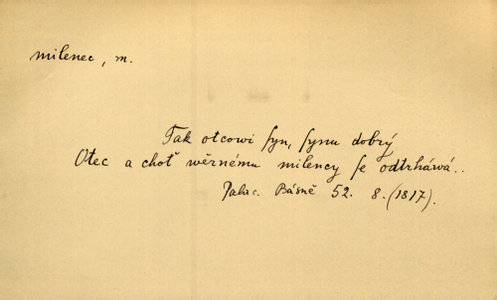 milenec, m.
Tak otcowi syn, synu dobrý
Otec a choť wěrnému milency se odtrháwá..
Palac. Básně 52. 8. (1817).